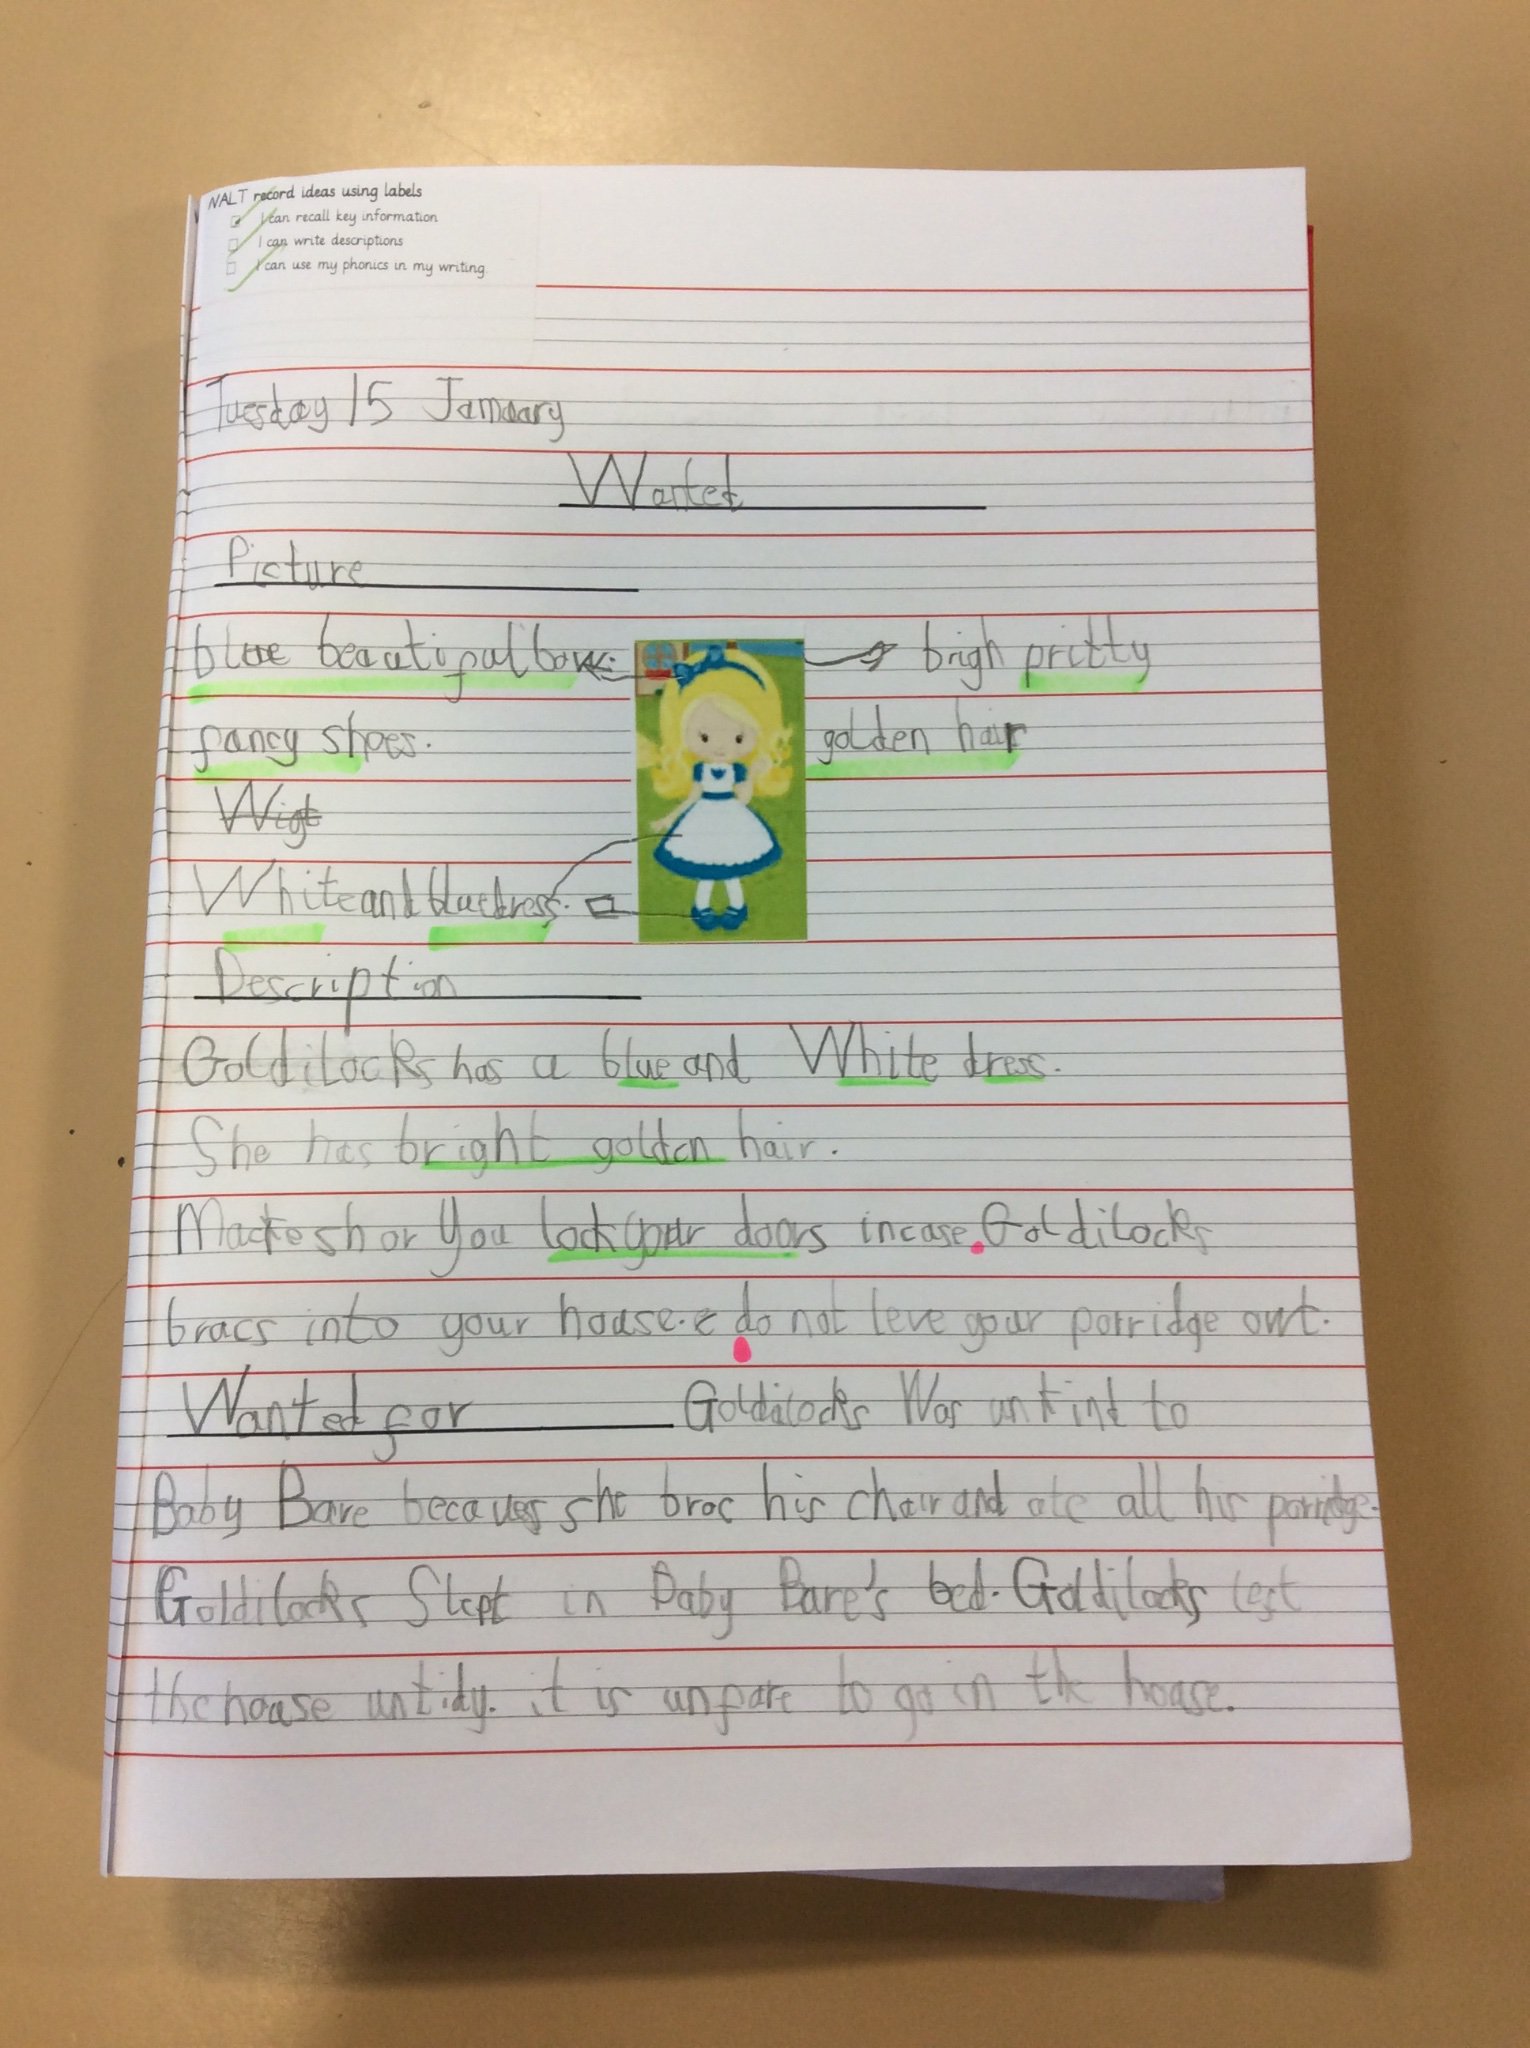 WALT record ideas using labels
I can recall key information
I can write descriptions
I can use my phonics in my writing.
Tuesday 15 January
Wanted
Picture
blue beautiful bow. brigh pritty
fancy shoes. golden hair
White and blue dress.
Description
Goldilocks has a blue and White dress.
She has bright golden hair.
Macke shor You lock your doors incase. Goldilocks
bracs into your house. do not leve your porridge owt.
Wanted for Goldilocks Was unkind to
Baby Bare because she broc his chair and ate all his porridge.
Goldilocks Slept in Baby Bare's bed. Goldilocks left
the house untidy. it is unfare to go in the house.